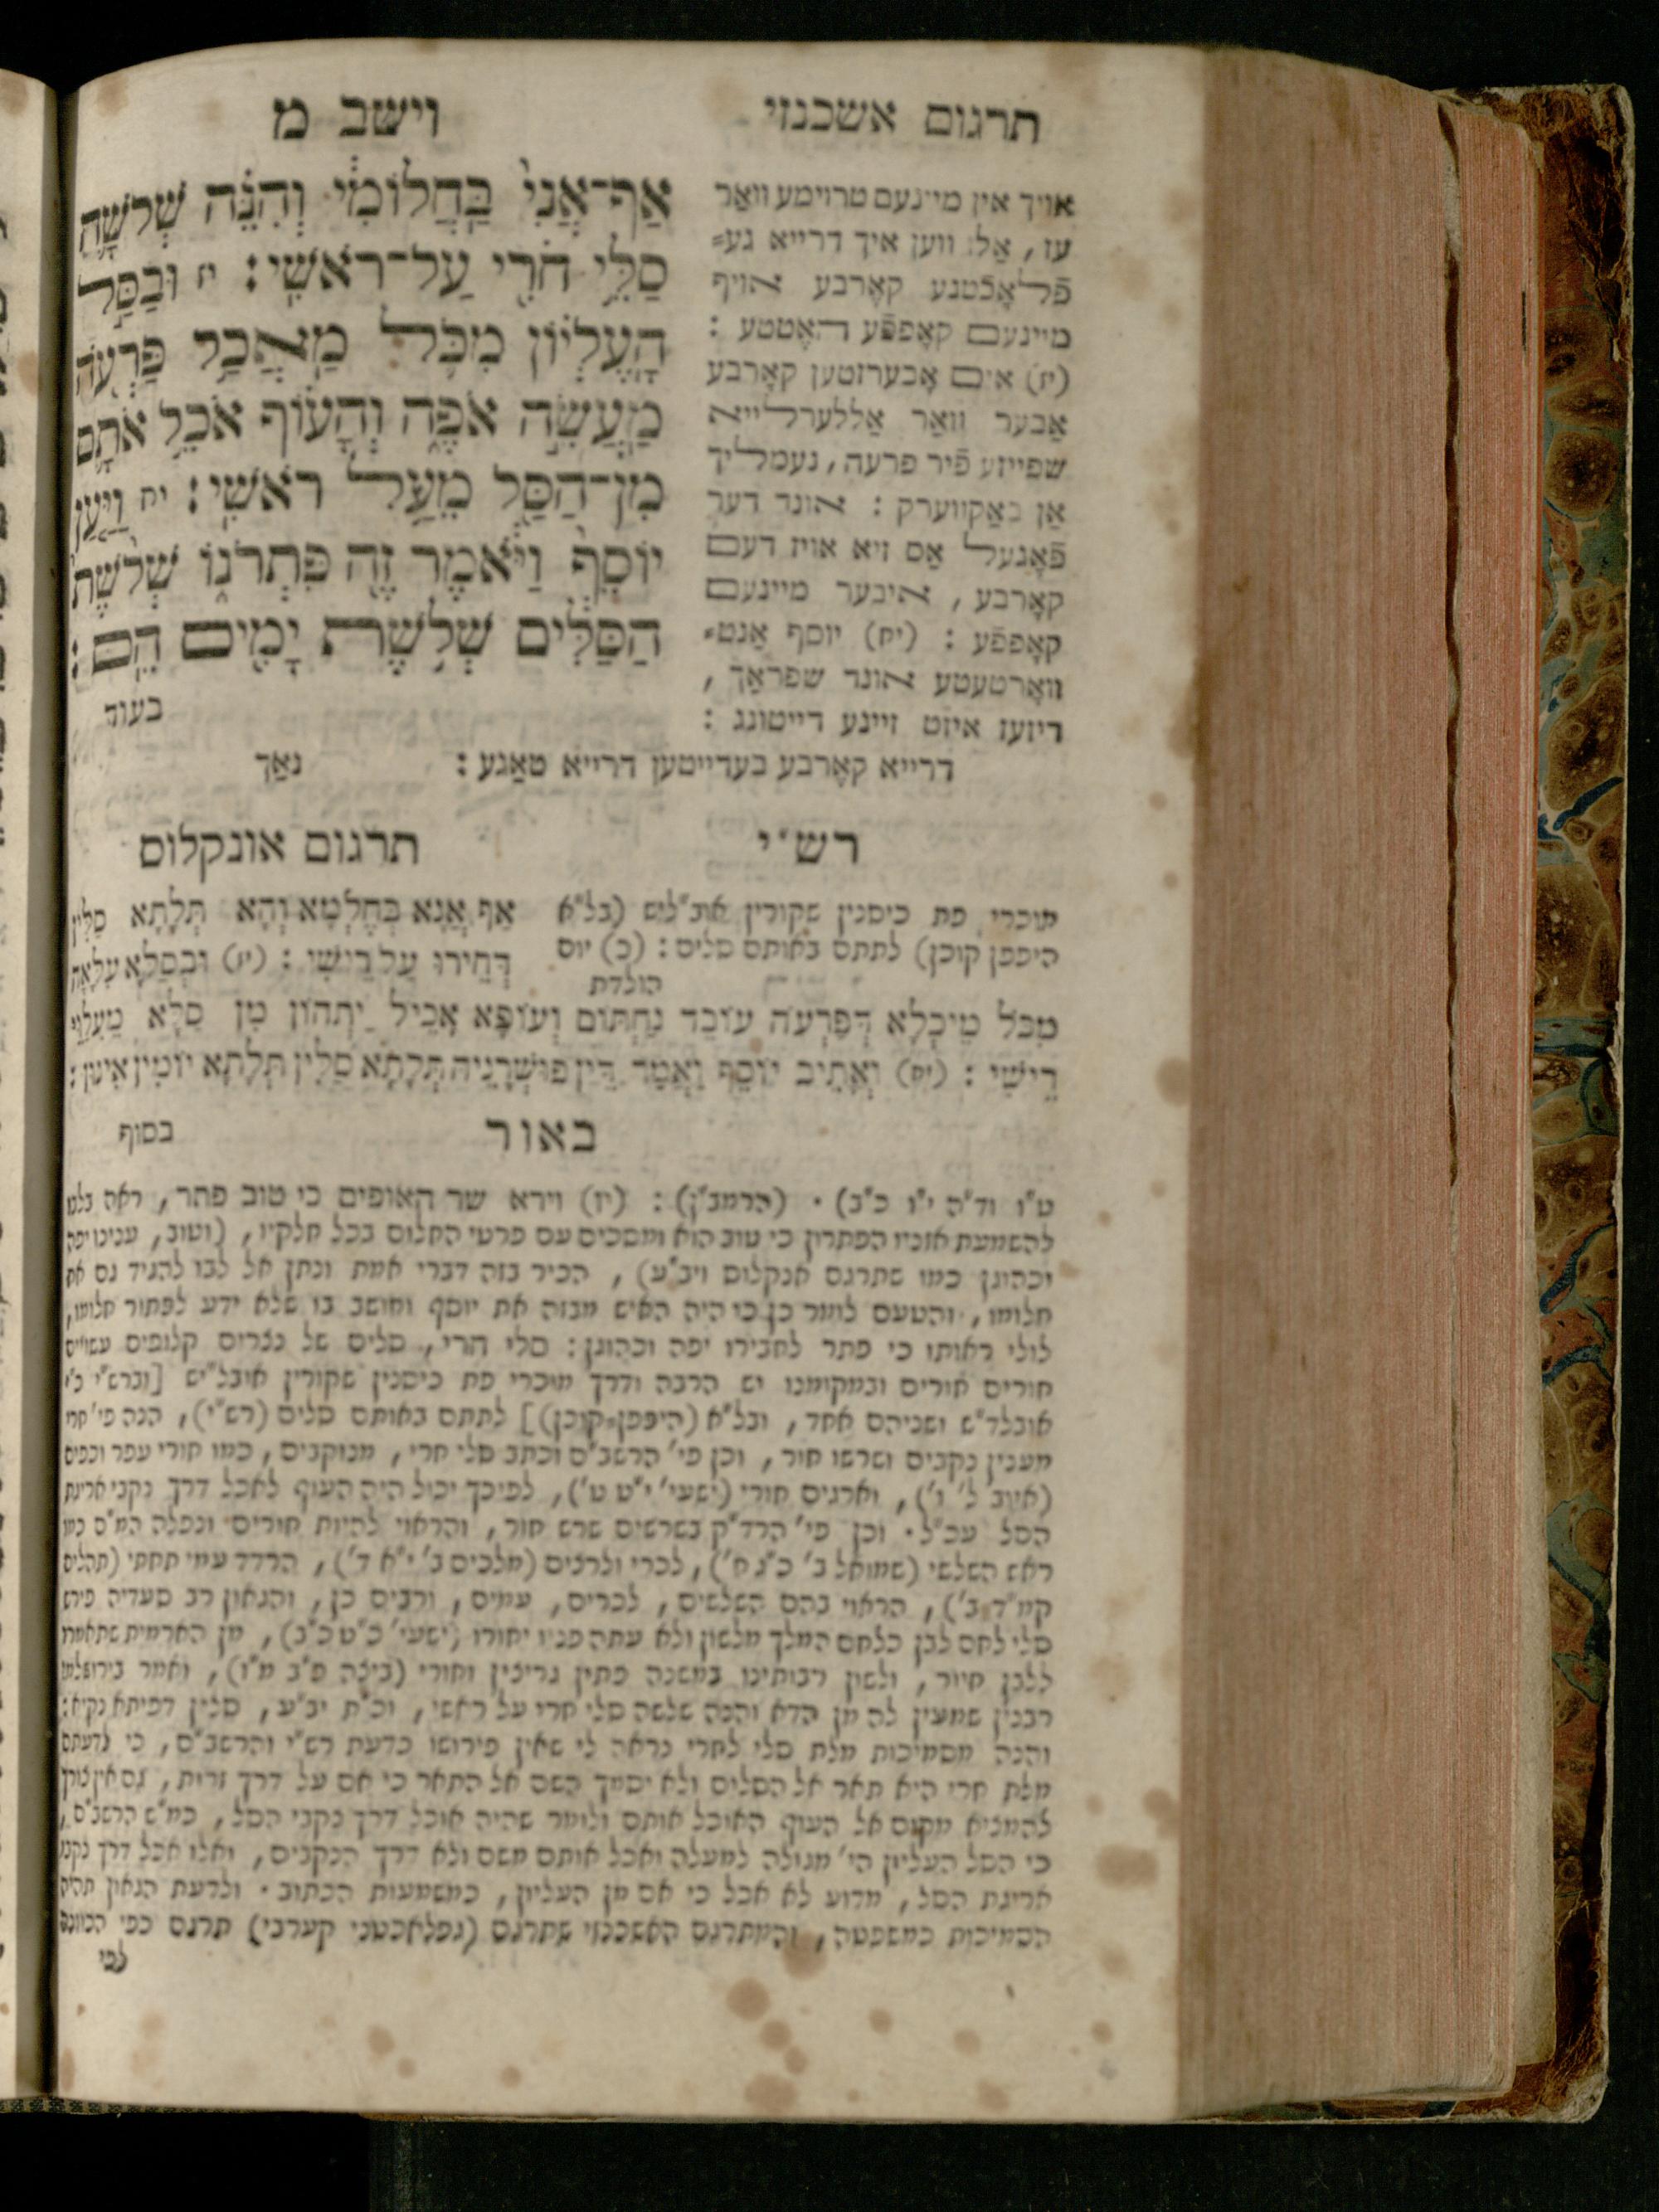 תרגום אשכנזי
וישב מ
אַף־אֲנִי֙ בַּחֲלוֹמִ֔י וְהִנֵּ֗ה שְׁלֹשָׁ֛ה
סַלֵּ֥י חֹרִ֖י עַל־רֹאשִֽׁי׃ יז וּבַסַּ֣ל
הָֽעֶלְי֗וֹן מִכֹּ֛ל מַֽאֲכַ֥ל פַּרְעֹ֖ה
מַֽעֲשֵׂ֣ה אֹפֶ֑ה וְהָע֗וֹף אֹכֵ֥ל אֹתָ֛ם
מִן־הַסַּ֖ל מֵעַ֥ל רֹאשִֽׁי׃ יח וַיַּ֤עַן
יוֹסֵף֙ וַיֹּ֔אמֶר זֶ֖ה פִּתְרֹנ֑וֹ שְׁלֹ֙שֶׁת֙
הַסַּלִּ֔ים שְׁלֹ֥שֶׁת יָמִ֖ים הֵֽם׃
בעוד
אויך אין מיינעם טרוימע וואַר
עז, אַלז ווען איך דרייא גע⸗
פֿלאָכֿטנע קאָרבע אויף
מיינעם קאָפפֿע האָטטע :
(יז) אים אָבערזטען קאָרבע
אַבער וואַר אַללערלייא
שפייזע פֿיר פרעה, נעמליך
אַן באַקווערק : אונד דער
פֿאָגעל אַס זיא אויז דעם
קאָרבע, איבער מיינעם
קאָפפֿע : (יח) יוסף אַנט⸗
וואָרטעטע אונד שפראַך ,
דיזעז איזט זיינע דייטונג :
דרייא קאָרבע בעדייטען דרייא טאַגע : נאָך
רש״י
מוכרי פת כיסנין שקורין (בל״א
היפפן קוכן) לתתם באותם סלים : (כ) יום
הולדת
תרגום אונקלוס
אַף אֲנָא בְּחֶלְמָא וְהָא תְּלָתָא סַלִּין
דְּחֵירוּ עַל רֵישִׁי : (יז) וּבְסַלָּא עִלָּאָה
מִכֹּל מֵיכְלָא דְּפַרְעֹה עוֹבַד נַחְתּוֹם וְעוֹפָא אָכֵיל יָתְהוֹן מִן סַלָּא מֵעִלָּוֵי
רֵישִׁי : (יח) וְאָתֵיב יוֹסֵף וַאֲמַר דֵּין פּוּשְׁרָנֵיהּ תְּלָתָא סַלִּין תְּלָתָא יוֹמִין אִינּוּן :
באור
בסוף
ט״ו וד״ה י״ו כ״ב) . (הרמב״ן) : (יז) וירא שר האופים כי טוב פתר, ראה בלבו
להשמעת אזניו הפתרון כי טוב הוא ומסכים עם פרטי החלום בכל חלקיו, (וטוב, ענינו יפה
וכהוגן כמו שתרגם אנקלוס ויב״ע), הכיר בזה דברי אמת ונתן אל לבו להגיד גם את
חלומו, והטעם לומר כן כי היה האיש מבזה את יוסף וחושב בו שלא ידע לפתור חלומו,
לולי ראותו כי פתר לחבירו יפה וכהוגן : סלי חרי, סלים של נצרים קלופים עשויים
חורים חורים ובמקומנו יש הרבה ודרך מוכרי פת כיסנין שקורין אובל״יש [וברש״י כ״י
אובלד״ש ושניהם אחד, ובל״א (היפפן⸗קוכן)] לתתם באותם סלים (רש״י), הנה פי׳ חרי
מענין נקבים ושרשו חור, וכן פי׳ הרשב״ם וכתב סלי חרי, מנוקבים, כמו חורי עפר וכפים
(איוב ל׳ ו׳), ואורגים חורי (ישעי׳ י״ט ט׳), לפיכך יכול היה העוף לאכל דרך נקבי אריגת
הסל עכ״ל. וכן פי׳ הרד״ק בשרשים שרש חור, והראוי להיות חורים ונפלה המ״ם כמו
ראש השלשי (שמואל ב׳ כ״ג ח׳), לכרי ולרצים (מלכים ב׳ י״א ד׳), הרודד עמי תחתי (תהלים
קמ״ד ב׳), הראוי בהם השלשים, לכרים, עמים, ורבים כן, והגאון רב סעדיה פירש
סלי לחם לבן כלחם המלך מלשון ולא עתה פניו יחורו (ישעי׳ כ״ט כ״ב), מן הארמית שתאמרו
ללבן חיור, ולשון רבותינו במשנה פתין גריצין וחורי (ביצה פ״ב מ״ו), ואמר בירושלמי
רבנין שמעין לה מן הדא והנה שלשה סלי חרי על ראשי, וכ״ת יב״ע, סלין דפיתא נקיא :
והנה מסמיכות מלת סלי לחרי נראה לי שאין פירושו כדעת רש״י והרשב״ם, כי לדעתם
מלת חרי היא תאר אל הסלים ולא יסמך השם אל התאר כי אם על דרך זרות, גם אין צורך
להמציא מקום אל העוף האוכל אותם ולומר שהיה אוכל דרך נקבי הסל, כמ״ש הרשב״ם,
כי הסל העליון הי׳ מגולה למעלה ואכל אותם משם ולא דרך הנקבים, ואלו אכל דרך נקבי
אריגת הסל, מדוע לא אכל כי אם מן העליון, כמשמעות הכתוב. ולדעת הגאון תהיה
הסמיכות כמשפטה, והמתרגם האשכנזי שתרגם (געפלאכטני קערבי) תרגם כפי הכוונה
לפי